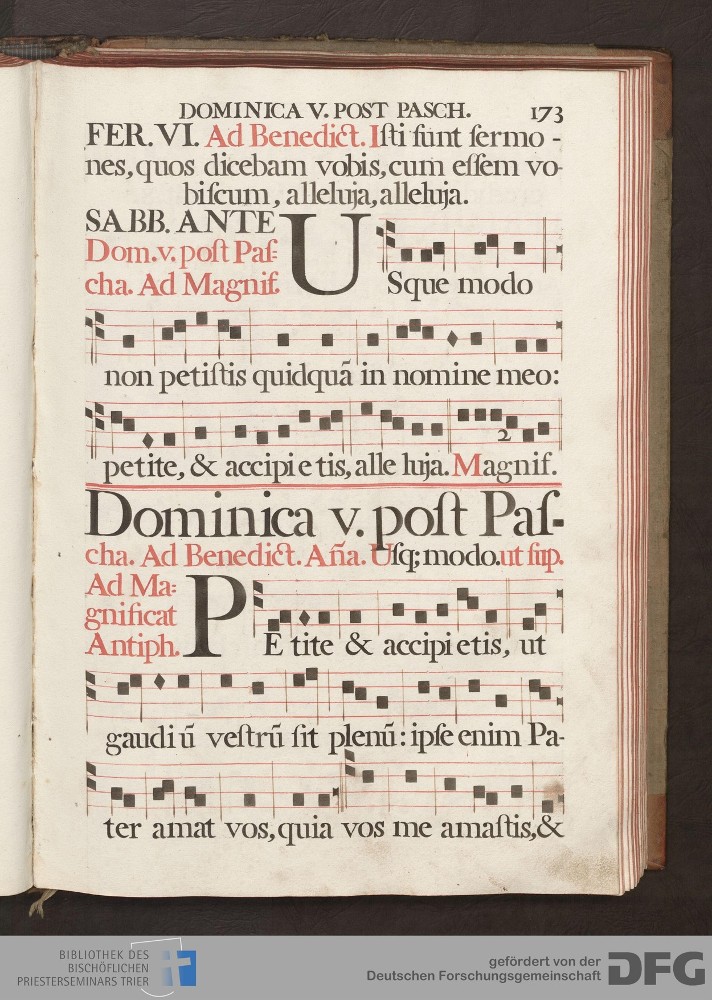 DOMINICA V. POST PASCH. 173
FER. VI. Ad Benedict. Iſti ſunt ſermo -
nes, quos dicebam vobis, cum eſſem vo-
biſcum, alleluja, alleluja.
SABB. ANTE
Dom. v. poſt Paſ-
cha. Ad Magnif.
USque modo
non petiſtis quidquã in nomine meo:
2
petite, & accipi e tis, alle luja. Magnif.
Dominica v. poſt Paſ-
cha. Ad Benedict. Aña. Uſq; modo. ut ſup.
Ad Ma-
gnificat
Antiph.
PE tite & accipi etis, ut
gaudi ũ veſtrũ ſit plenũ: ipſe enim Pa-
ter amat vos, quia vos me amaſtis, &
BIBLIOTHEK DES
BISCHÖFLICHEN
PRIESTERSEMINARS TRIER
gefördert von der
Deutschen Forschungsgemeinschaft
DFG